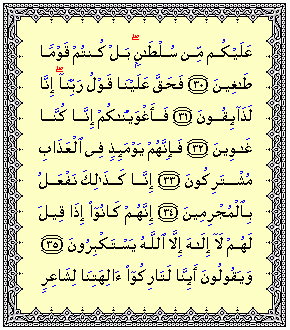 عَلَيْكُم مِّن سُلْطَٰنٍۭ ۖ بَلْ كُنتُمْ قَوْمًا
طَٰغِينَ ﴿٣٠﴾ فَحَقَّ عَلَيْنَا قَوْلُ رَبِّنَآ ۖ إِنَّا
لَذَآئِقُونَ ﴿٣١﴾ فَأَغْوَيْنَٰكُمْ إِنَّا كُنَّا
غَٰوِينَ ﴿٣٢﴾ فَإِنَّهُمْ يَوْمَئِذٍ فِى ٱلْعَذَابِ
مُشْتَرِكُونَ ﴿٣٣﴾ إِنَّا كَذَٰلِكَ نَفْعَلُ
بِٱلْمُجْرِمِينَ ﴿٣٤﴾ إِنَّهُمْ كَانُوٓا۟ إِذَا قِيلَ
لَهُمْ لَآ إِلَٰهَ إِلَّا ٱللَّهُ يَسْتَكْبِرُونَ ﴿٣٥﴾
وَيَقُولُونَ أَئِنَّا لَتَارِكُوٓا۟ ءَالِهَتِنَا لِشَاعِرٍ